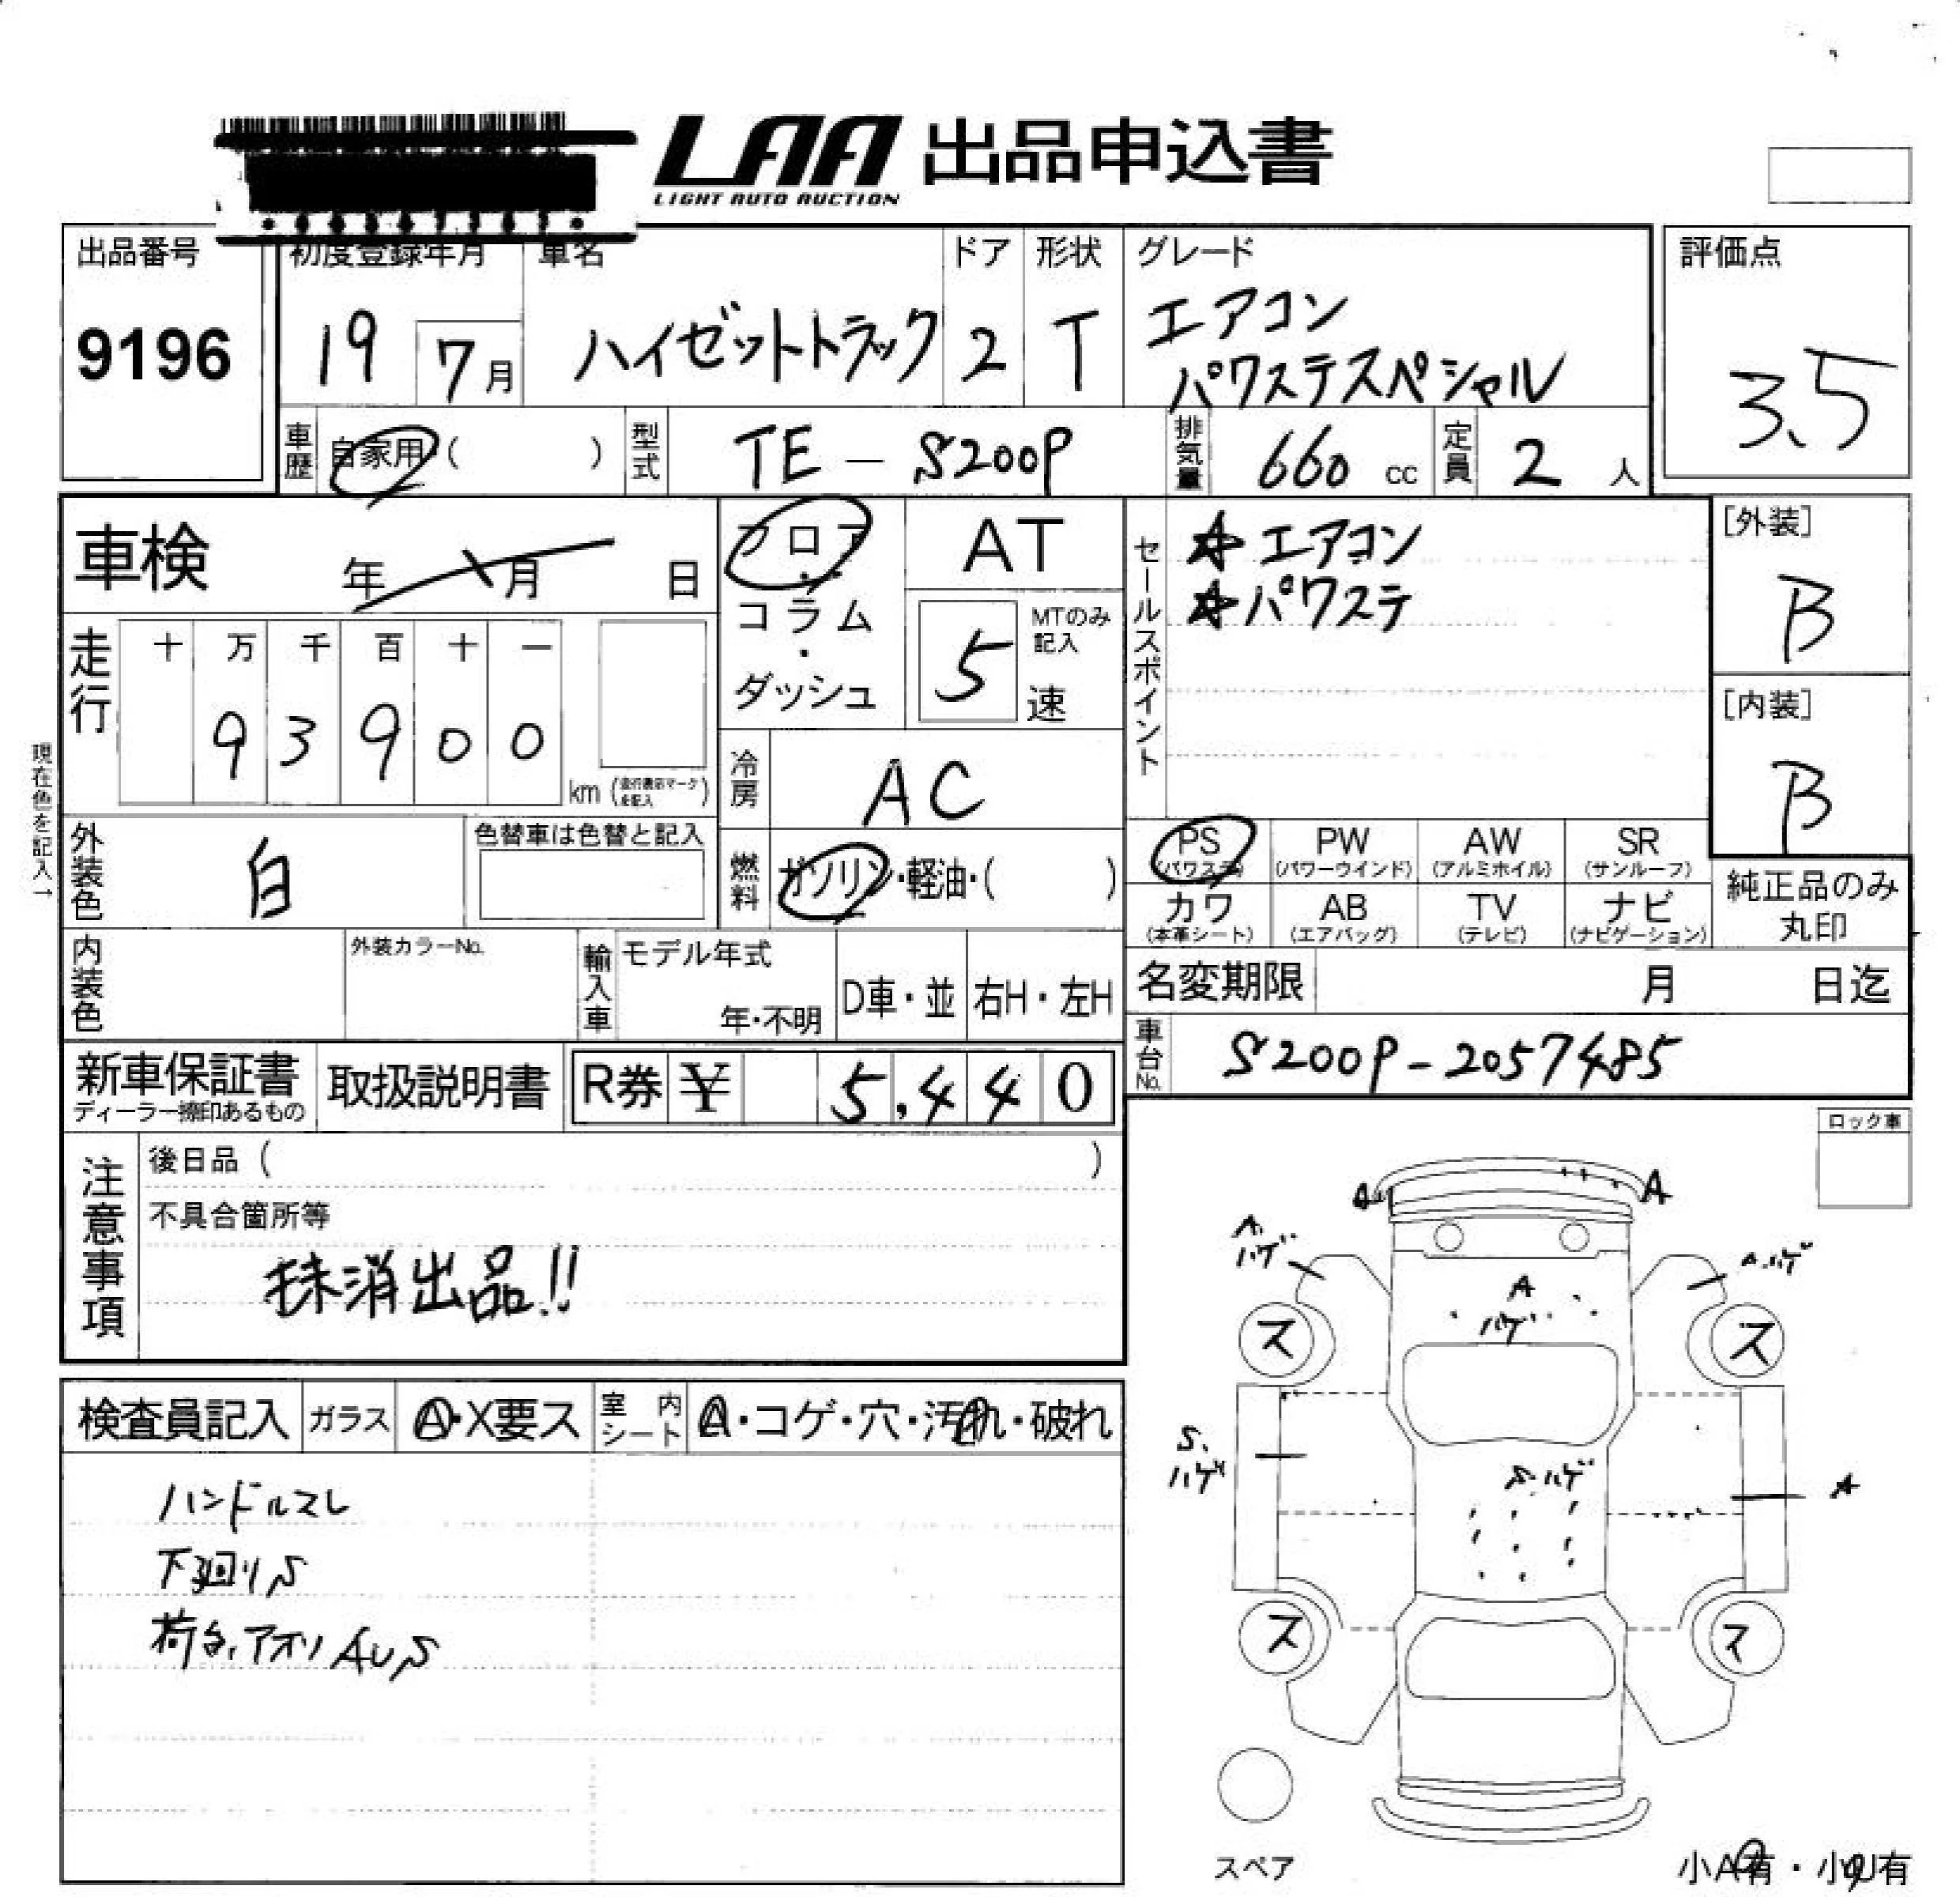 LAA 出品申込書
LIGHT AUTO AUCTION
出品番号
9196
初度登録年月
19
7月
車名
ハイゼットトラック
ドア
2
形状
T
グレード
エアコン
パワステスペシャル
評価点
3.5
車歴
自家用 ( )
型式
TE - S200P
排気量
660 cc
定員
2 人
車検
年 月 日
走行
十 万 千 百 十 一
9 3 9 0 0
km
現在色を記入→
外装色
白
色替車は色替と記入
内装色
外装カラーNo.
フロア
・
コラム
・
ダッシュ
AT
5
MTのみ
記入
速
冷房
AC
燃料
ガソリン・軽油・( )
輸入車
モデル年式
年・不明
D車・並
右H・左H
セールスポイント
☆エアコン
☆パワステ
[外装]
B
[内装]
B
PS
(パワステ)
PW
(パワーウインド)
AW
(アルミホイル)
SR
(サンルーフ)
カワ
(本革シート)
AB
(エアバッグ)
TV
(テレビ)
ナビ
(ナビゲーション)
純正品のみ
丸印
名変期限
月 日迄
車台No.
S200P-2057485
新車保証書
取扱説明書
R券 ¥ 5,440
注意事項
後日品 ( )
不具合箇所等
抹消出品!!
ロック車
検査員記入
ガラス
A・X要ス
室内
シート
A・コゲ・穴・汚れ・破れ
ハンドルスレ
下廻りS
荷台、アオリ AUS
A
A
A.
ハゲ
A.ハゲ
A
ハゲ
ス
ス
S.
ハゲ
S.ハゲ
A
ス
ス
スペア
小A有・小U有